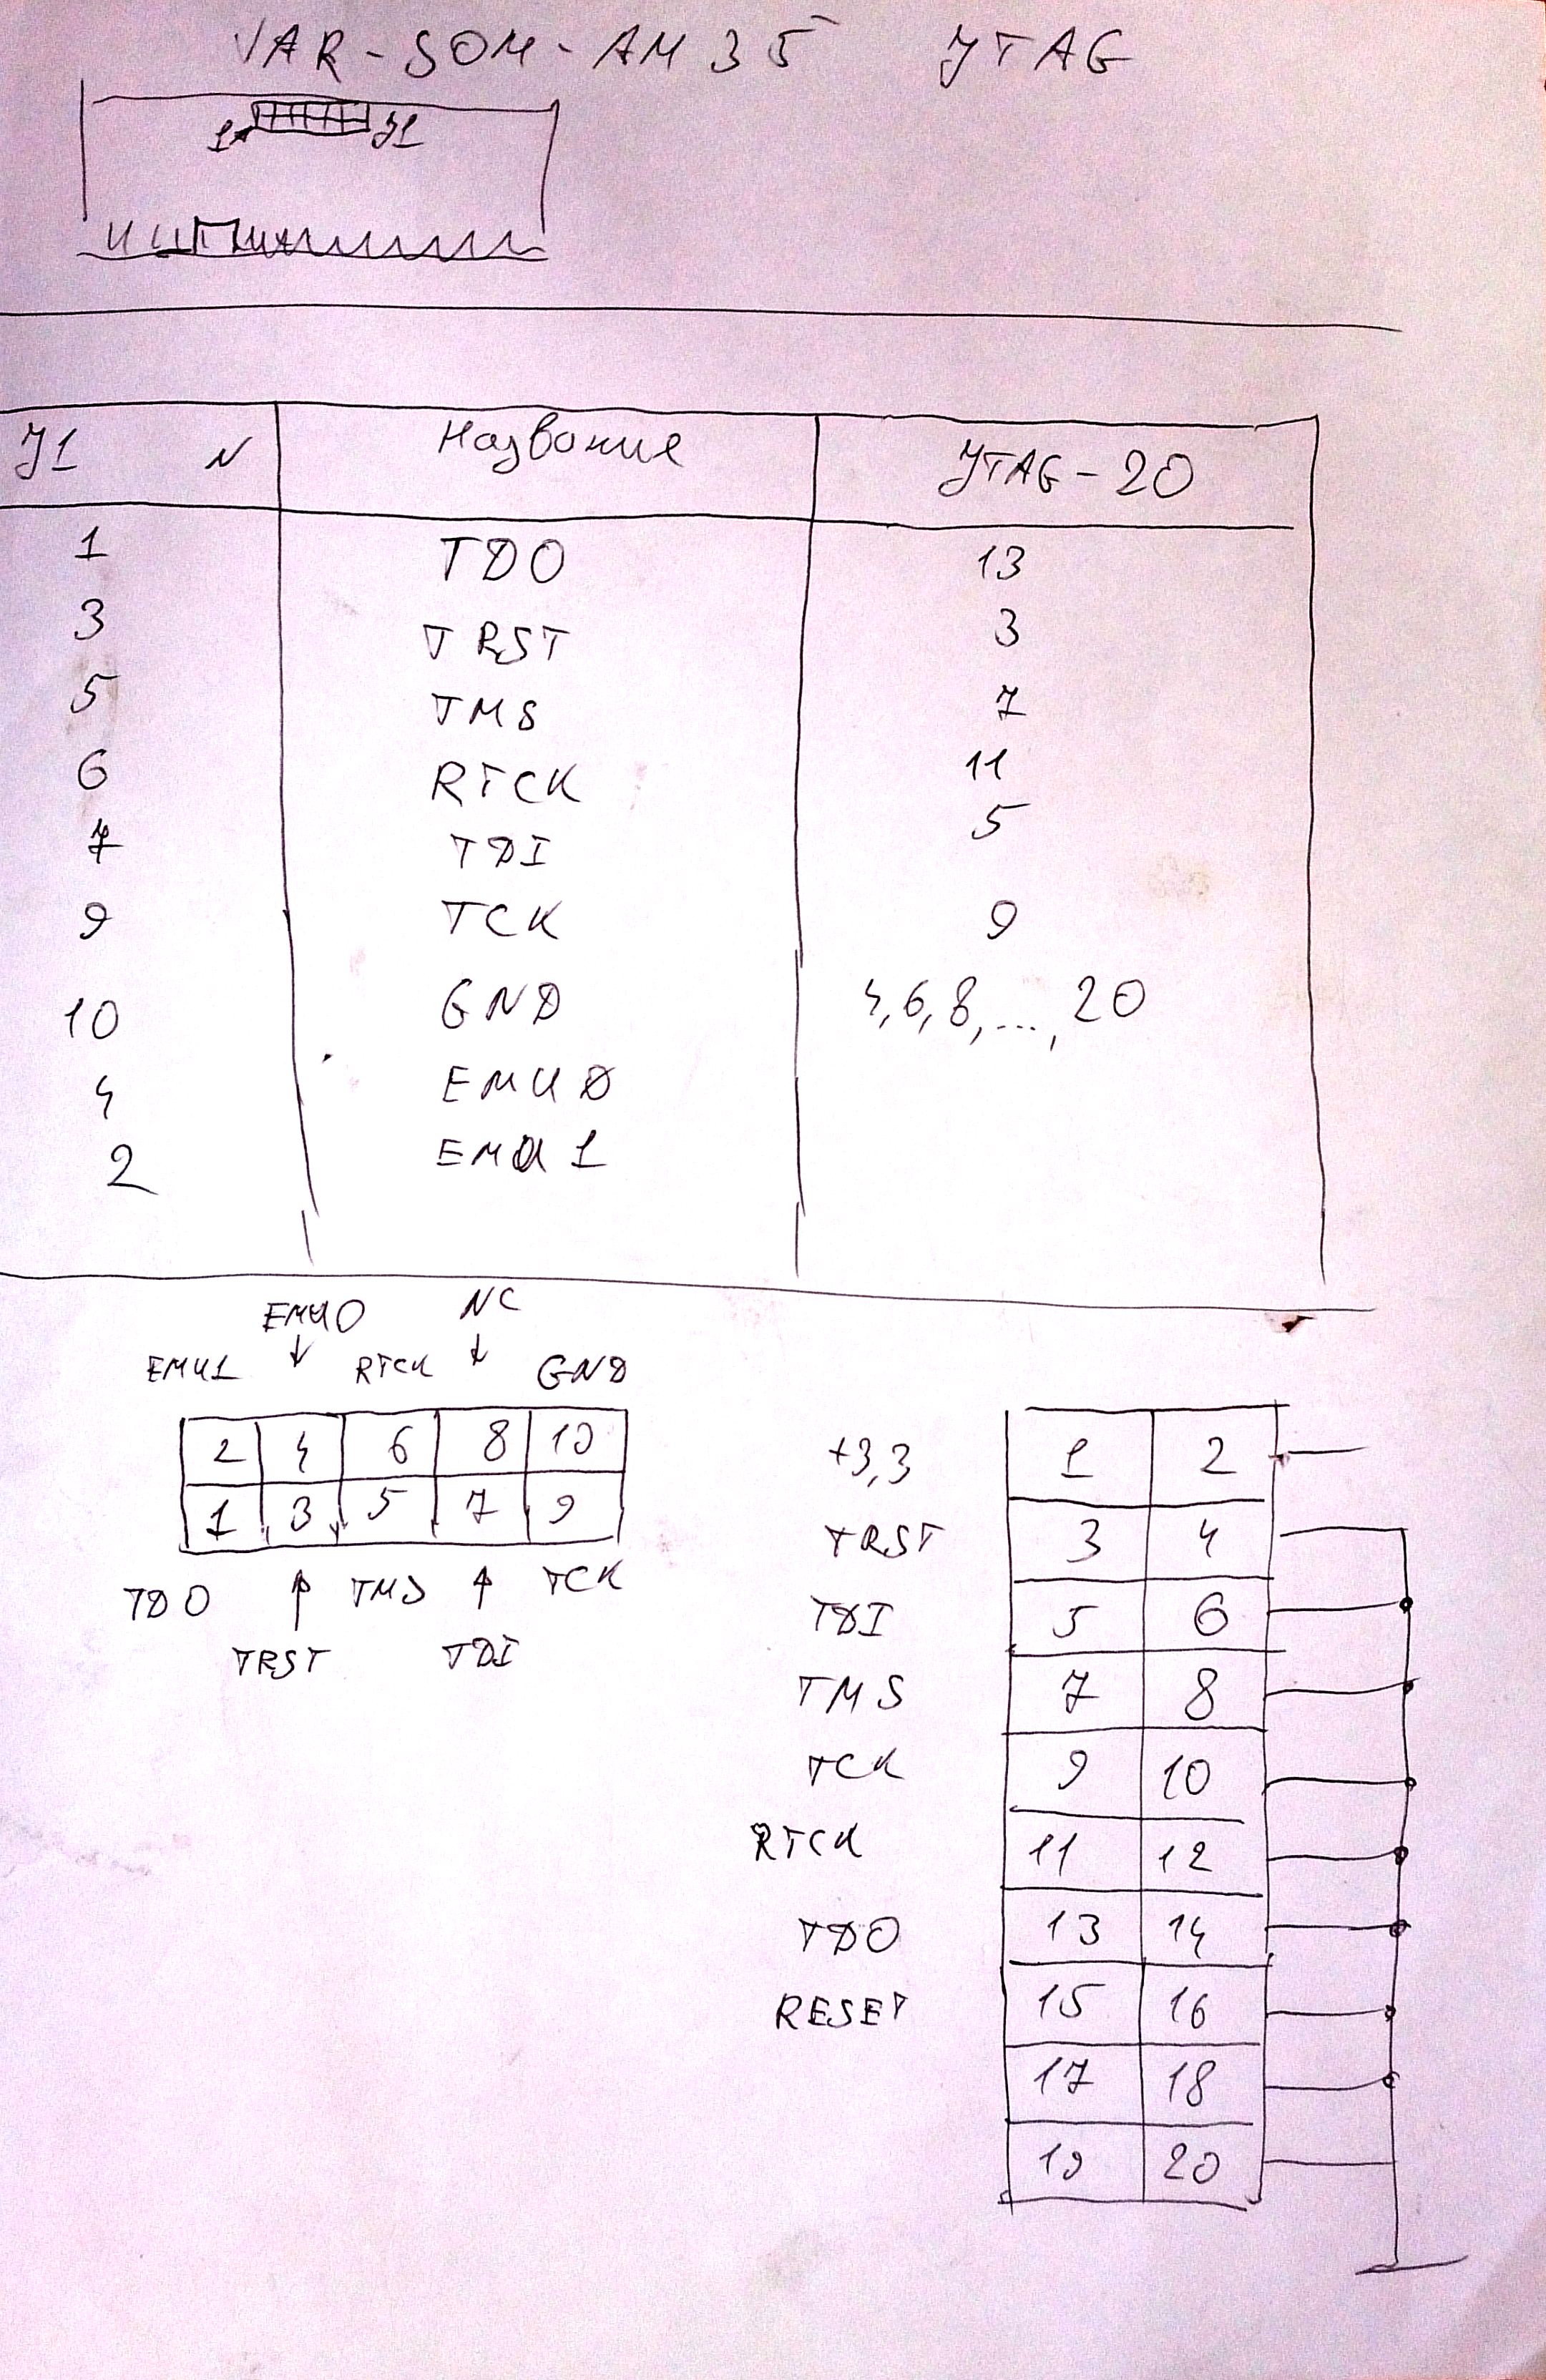 VAR-SOM-AM35 JTAG
1 J1
J1 N Название JTAG-20
1 TDO 13
3 TRST 3
5 TMS 7
6 RTCK 11
7 TDI 5
9 TCK 9
10 GND 4,6,8,...,20
4 EMU0
2 EMU1
EMU0 NC
EMU1 RTCK GND
2 4 6 8 10
1 3 5 7 9
TDO TMS TCK
TRST TDI
+3,3 1 2
TRST 3 4
TDI 5 6
TMS 7 8
TCK 9 10
RTCK 11 12
TDO 13 14
RESET 15 16
17 18
19 20